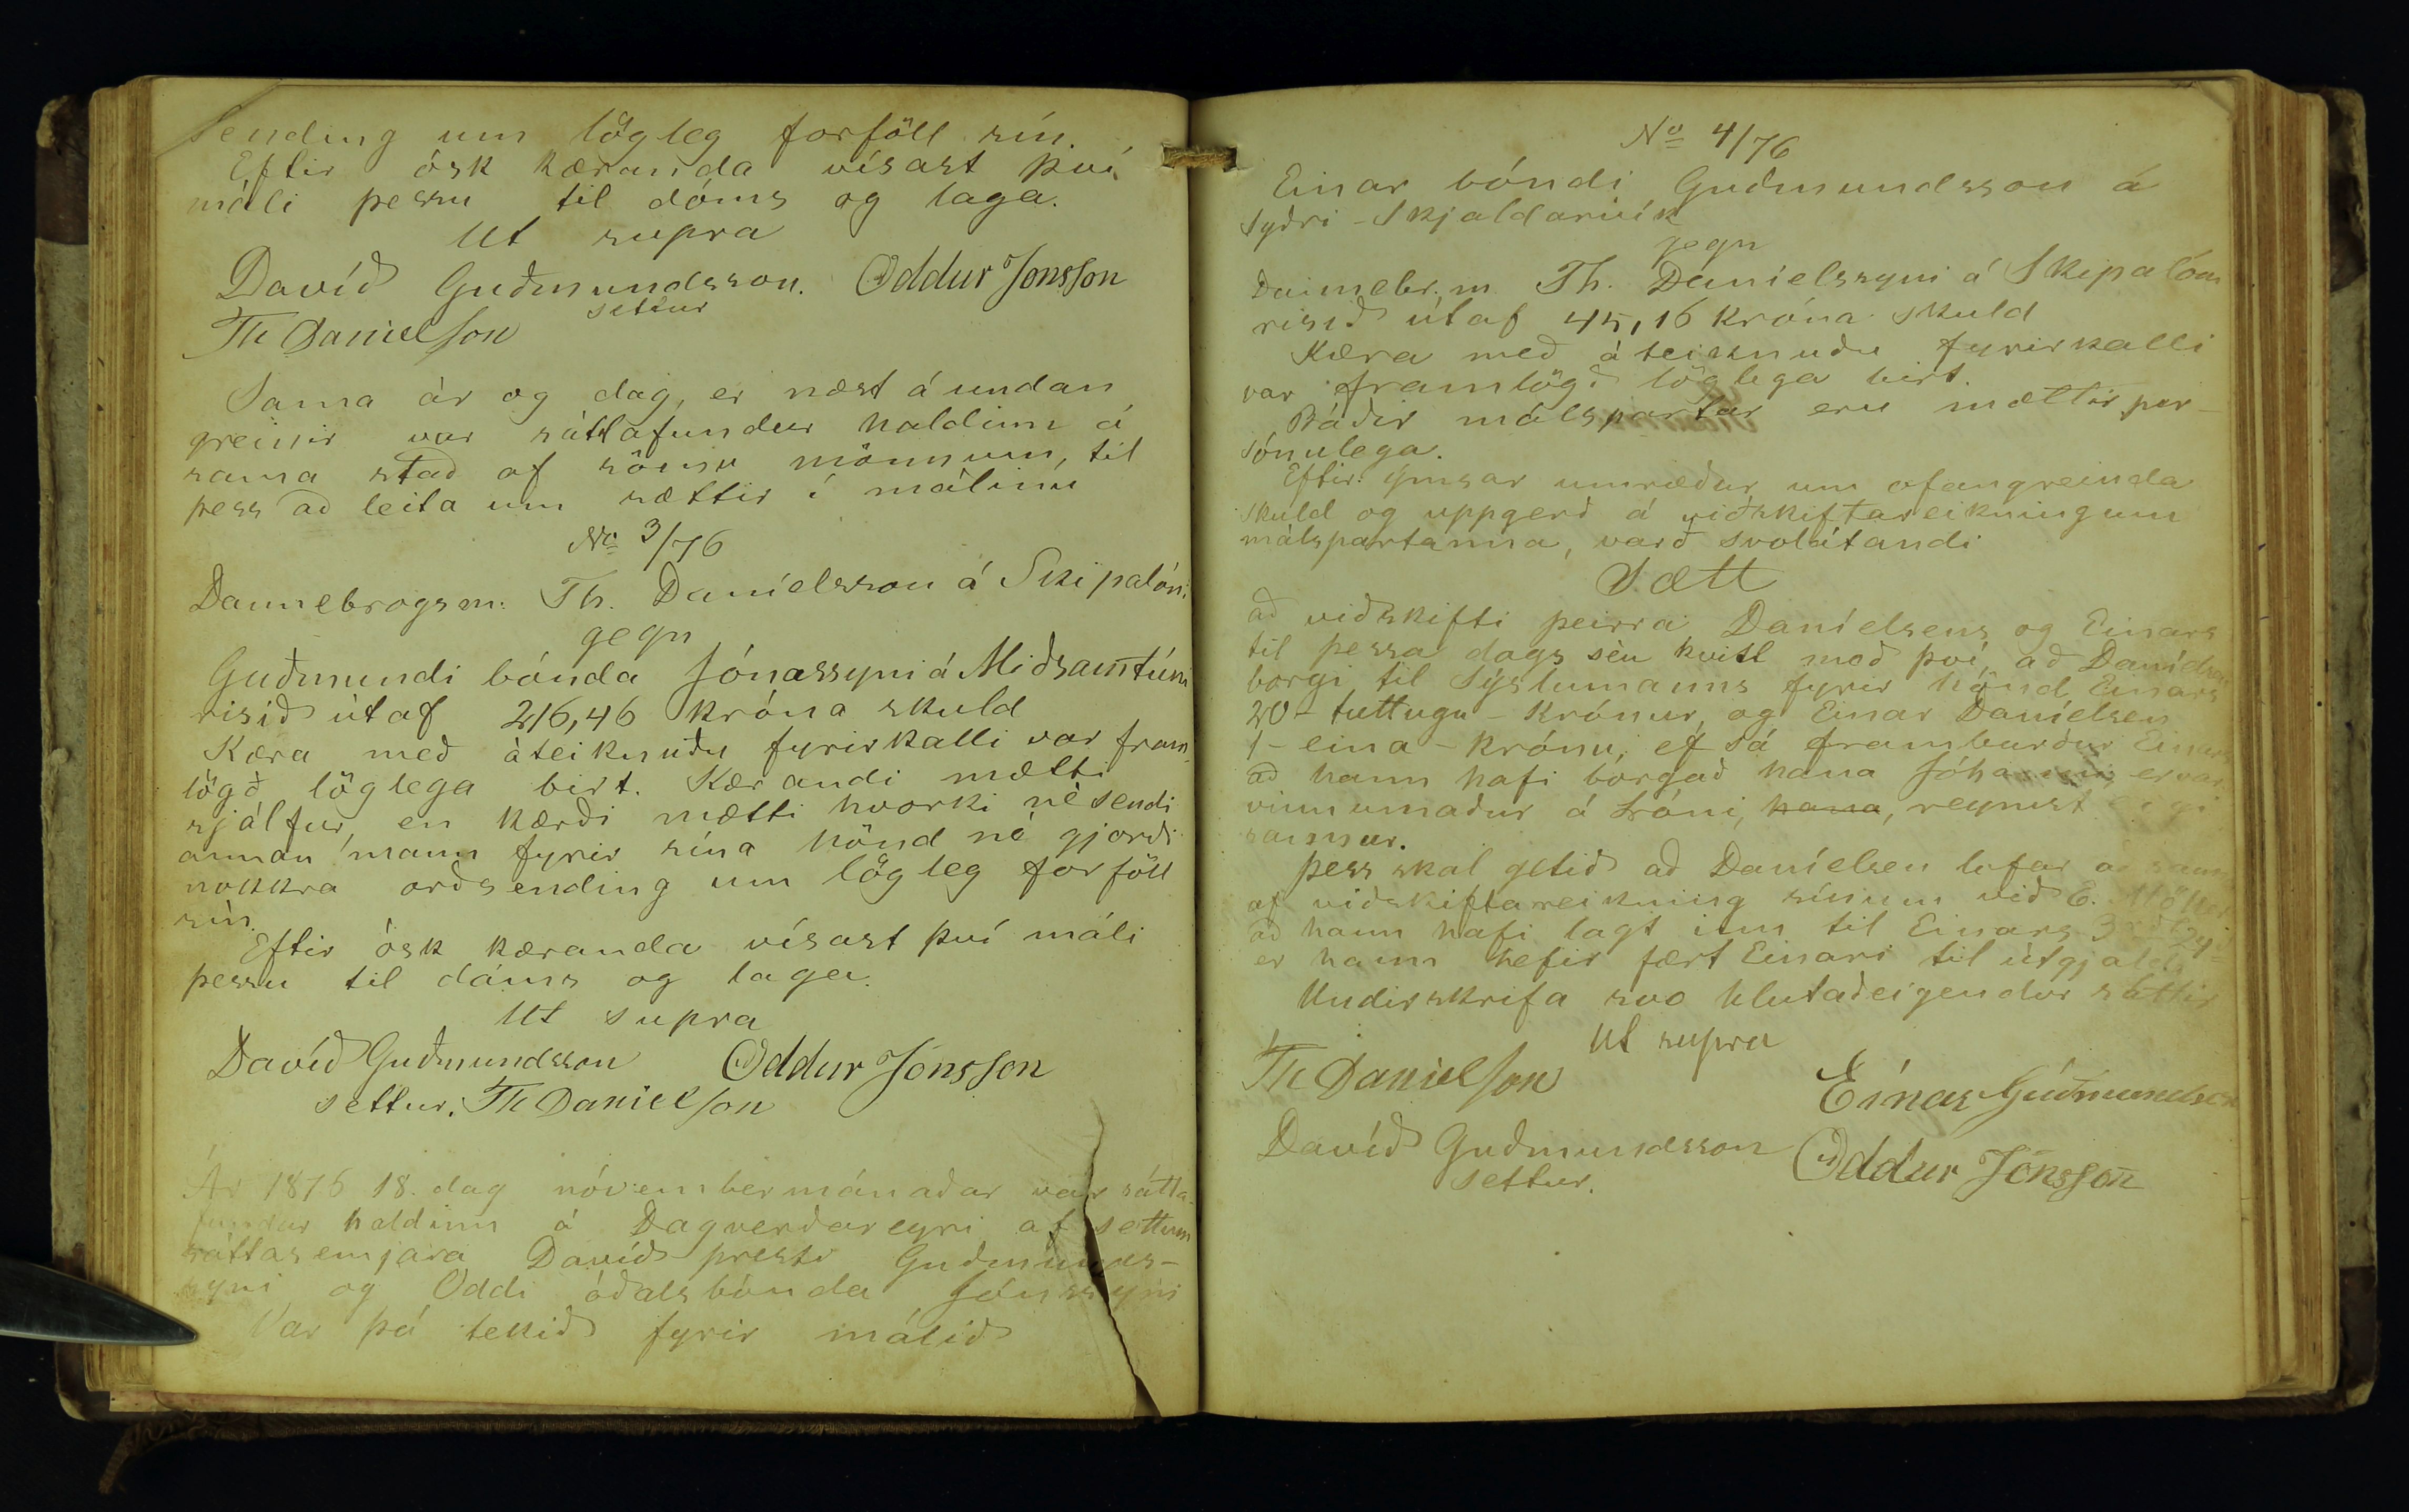 sending um lögleg forföll sín.
Eftir ósk kæranda vísast því
máli þessu til dóms og laga.
Ut supra
Davíð Guðmundsson. Oddur Jonsson
settur
Th Danielson
Sama ár og dag, er næst á undan
greinir var sáttafundur haldinn á
sama stað af sömu mönnum, til
þess að leita um sættir í málinu
No 3/76
Dannebrogsm: Th. Daníelsson á Skipalóni
gegn
Guðmundi bónda Jónassyni á Miðsamtúni
risið útaf 216,46 króna skuld
Kæra með áteiknuðu fyrirkalli var fram-
lögð löglega birt. Kærandi mætti
sjálfur, en kærði mætti hvorki nè sendi
annan mann fyrir sína hönd nè gjorði
nokkra orðsending um lögleg forföll
sín.
Eftir ósk kæranda vísast því máli
þessu til dóms og laga.
Ut supra
Davíð Guðmundsson Oddur Jónsson
settur. Th Danielson
Ár 1876 18. dag nóvembermánaðar var sátta-
fundur haldinn á Dagverðareyri af settum
sáttasemjara Davíð presti Guðmunds-
syni og Oddi óðalsbónda Jónssyni
Var þá tekið fyrir málið
No 4/76
Einar bóndi Guðmundsson á
Syðri-Skjaldarvík
gegn
Dannebr. m. Th. Daníelssyni á Skipalóni
risið útaf 45,16 króna skuld
Kæra með áteiknuðu fyrirkalli
var framlögð löglega birt.
Báðir málspartar eru mættir per-
sónulega.
Eftir ýmsar umræður um ofangreinda
skuld og uppgerð á viðskiftareikningum
málspartanna, varð svolátandi
Sætt
að viðskifti þeirra Daníelsens og Einars
til þessa dags sèu kvitt með því, að Daníelsen
borgi til Sýslumanns fyrir hönd Einars
20 - tuttugu - krónur, og Einar Daníelsen
1 - eina - krónu, ef sá framburður Einars
að hann hafi borgað hana Jóhanni, er var
vinnumaður á Lóni, hana, reynist eigi
sannur.
Þess skal getið að Daníelsen lofar að sanna
af viðskiftareikning sínum við E. Möller
að hann hafi lagt inn til Einars 3
er hann hefir fært Einari til útgjalda
Undirskrifa svo hlutaðeigendur sáttir
Ut supra
Th Danielson
Einar Guðmundsson
Davíð Guðmundsson Oddur Jónsson
settur.